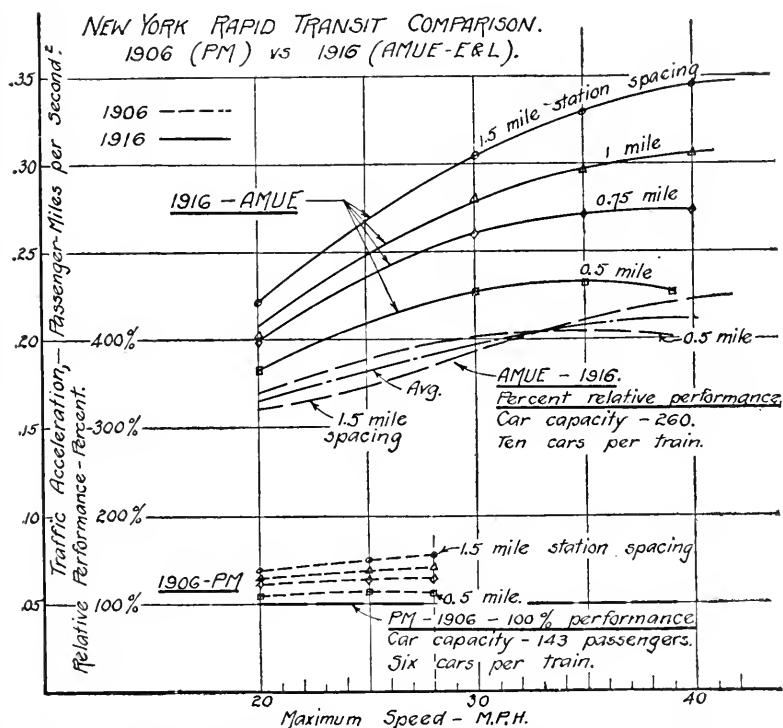 NEW YORK RAPID TRANSIT COMPARISON.
1906 (PM) VS 1916 (AMUE-E&L).
Traffic Acceleration,— Passenger-Miles per Second.²
Relative Performance-Percent.
.35
.30
.25
.20
.15
.10
.05
0
400%
300%
200%
100%
1906
1916
1.5 mile station spacing
1 mile
0.75 mile
0.5 mile
1916-AMUE
0.5 mile
Avg.
1.5 mile
spacing
AMUE - 1916.
Percent relative performance
Car capacity - 260.
Ten cars per train.
1906-PM
1.5 mile station spacing
0.5 mile.
PM - 1906 - 100% performance
Car capacity - 143 passengers.
Six cars per train.
20
30
40
Maximum Speed - M.P.H.